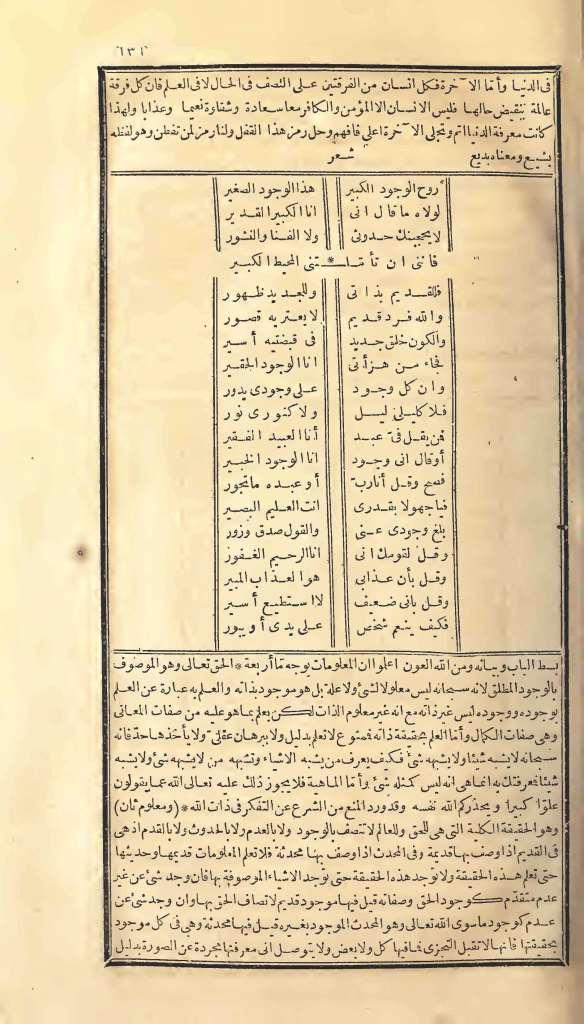 ١٣١
فى الدنيا وأما الآخرة فكل انسان من الفرقتين على النصف فى الحال لا فى العلم فان كل فرقة
عالمة بنقيض حالها فليس الانسان الا المؤمن والكافر معا سعادة وشقاوة نعيما وعذابا ولهذا
كانت معرفة الدنيا اتم وتجلى الآخرة اعلى فافهم وحل رمز هذا القفل ولنا رمز لمن تفطن وهو لفظه
بشيع ومعناه بديع شعر
روح الوجود الكبير هذا الوجود الصغير
لولاه ما قال انى انا الكبير القدير
لا يحجبنك حدوثى ولا الفنا والنشور
فاننى ان تأمّلـ * ـتنى المحيط الكبير
فللقديم بذاتى وللجديد ظهور
والله فرد قديم لا يعتريه قصور
والكون خلق جديد فى قبضتيه أسير
فجاء من هذا أنى انا الوجود الحقير
وان كل وجود على وجودى يدور
فلا كليلى ليل ولا كنورى نور
فمن يقل فىّ عبد أنا العبيد الفقير
أو قال انى وجود انا الوجود الخبير
فصح وقل أنا ربّ أو عبده ما تجور
فيا جهولا بقدرى انت العليم البصير
بلغ وجودى عنى والقول صدق وزور
وقل لقومك انى انا الرحيم الغفور
وقل بأن عذابى هو العذاب المبير
وقل بانى ضعيف لا استطيع أسير
فكيف ينعم شخص على يدى أو يبور
بسط الباب وبيانه ومن الله العون اعلموا ان المعلومات بوجه ما أربعة * الحق تعالى وهو الموصوف
بالوجود المطلق لانه سبحانه ليس معلولا لشئ ولا علة بل هو موجود بذاته والعلم به عبارة عن العلم
بوجوده ووجوده ليس غير ذاته مع انه غير معلوم الذات لكن يعلم بما هو عليه من صفات المعانى
وهى صفات الكمال وأما العلم بحقيقة ذاته فممنوع لا تعلم بدليل ولا ببرهان عقلى ولا يأخذها حد فانه
سبحانه لا يشبه شيئا ولا يشبهه شئ فكيف يعرف من يشبه الاشياء وتشبهه من لا يشبهه شئ ولا يشبه
شيئا فمعرفتك به انما هى انه ليس كمثله شئ وأما الماهية فلا يجوز ذلك عليه تعالى الله عما يقولون
علوّا كبيرا ويحذركم الله نفسه وقد ورد المنع من الشرع عن التفكر فى ذات الله * (ومعلوم ثان)
وهو الحقيقة الكلية التى هى للحق وللعالم لا تتصف بالوجود ولا بالعدم ولا بالحدوث ولا بالقدم اذ هى
فى القديم اذا وصف بها قديمة وفى المحدث اذا وصف بها محدثة فلا تعلم المعلومات قديمها وحديثها
حتى تعلم هذه الحقيقة ولا توجد هذه الحقيقة حتى توجد الاشياء الموصوفة بها فان وجد شئ عن غير
عدم متقدّم كوجود الحق وصفاته قيل فيها موجود قديم لاتصاف الحق بها وان وجد شئ عن
عدم كوجود ما سوى الله تعالى وهو المحدث الموجود بغيره قيل فيها محدثة وهى فى كل موجود
بحقيقتها فانها لا تقبل التجزى فما فيها كل ولا بعض ولا يتوصل الى معرفتها مجردة عن الصورة بدليل